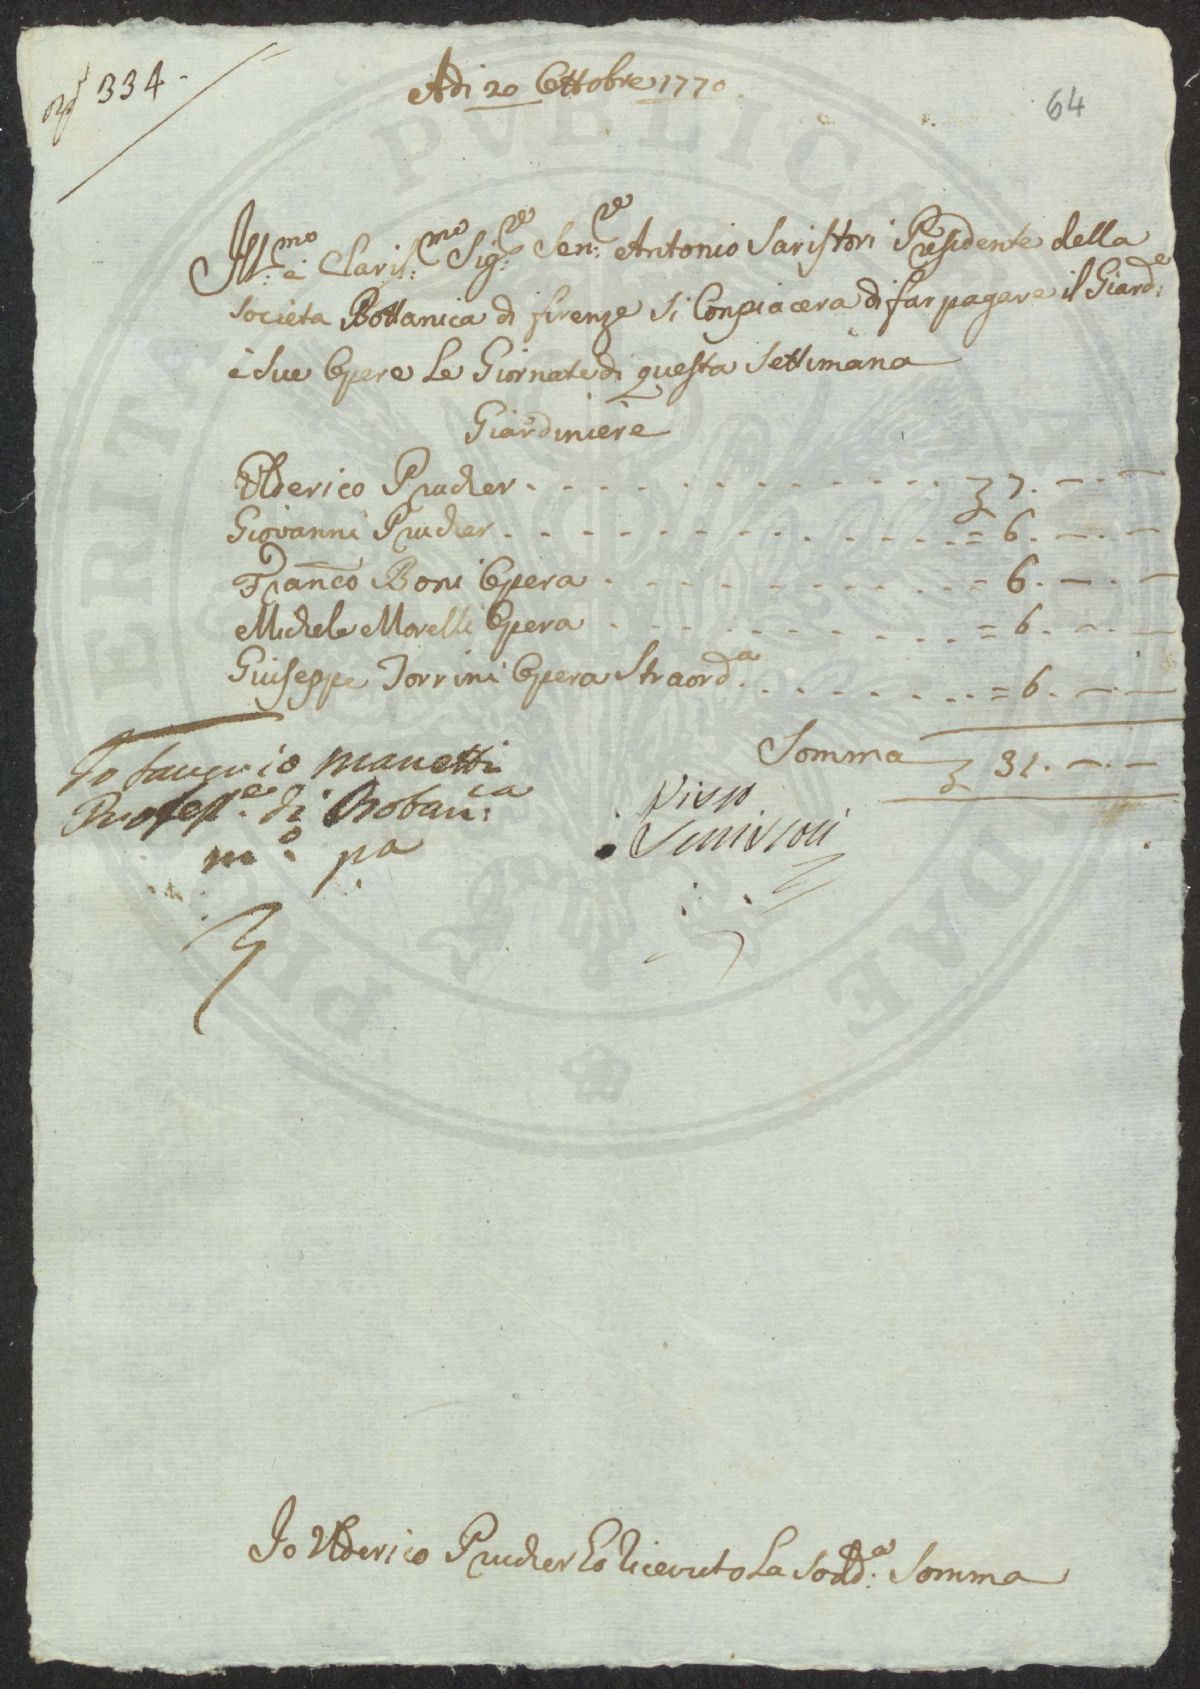 334.
Adi 20 Ottobre 1770
64
Ill:mo e Claris:mo Sig:re Sen:re Antonio Saristori Presidente della
Societa Bottanica di firenze si Conpiacera di far pagare il Giard:e
e Sue Opere Le Giornate di questa Settimana
Giardiniere
Ulderico Prucher . . . . . . . . . . . . . 7. — . —
Giovanni Prucher . . . . . . . . . . . . . = 6. — . —
Franco Boni Opera . . . . . . . . . . . = 6. — . —
Michele Morelli Opera . . . . . . . . . . = 6. — . —
Guiseppe Torrini Opera Straord:a . . . . . . . . = 6. — . —
Somma 31. — . —
Io Saverio Manetti
Profess:e di Botan:ca
m:o pa
Visto
Io Ulderico Prucher Ho ricevuto La Sodd:a Somma
PVBLICAE
PROSPERITATI